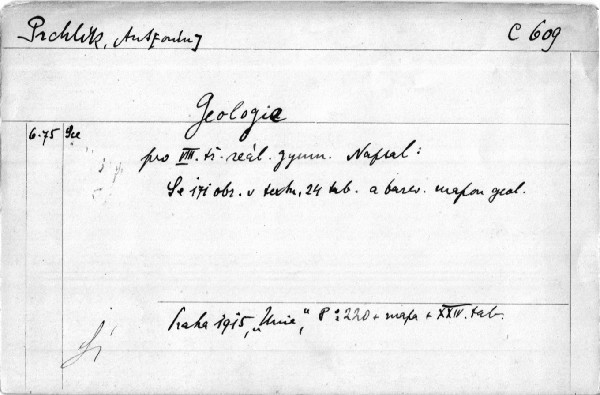 Prchlík, Ant[onín]
C 609
Geologie
6-75
pro VIII. tř. reál. gymn. Napsal:
Se 171 obr. v textu, 24 tab. a barev. mapou geol.
Praha 1915, „Unie", 8° 220 + mapa + XXIV. tab.